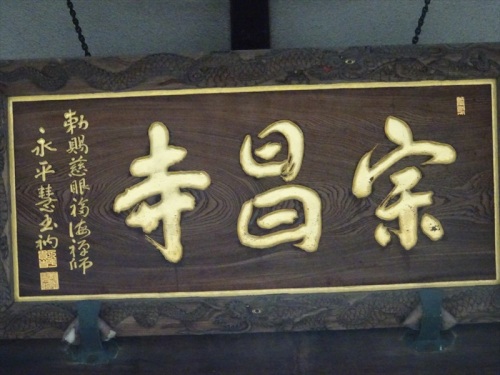 宗昌寺
勅賜慈眼福海禅師
永平慧玉衲